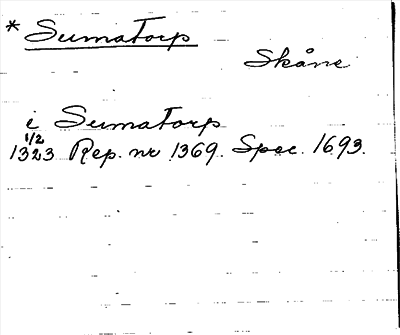 * Sumatorp
Skåne
i Sumatorp
1/2
1323 Rep. nr 1369. Spec. 1693.